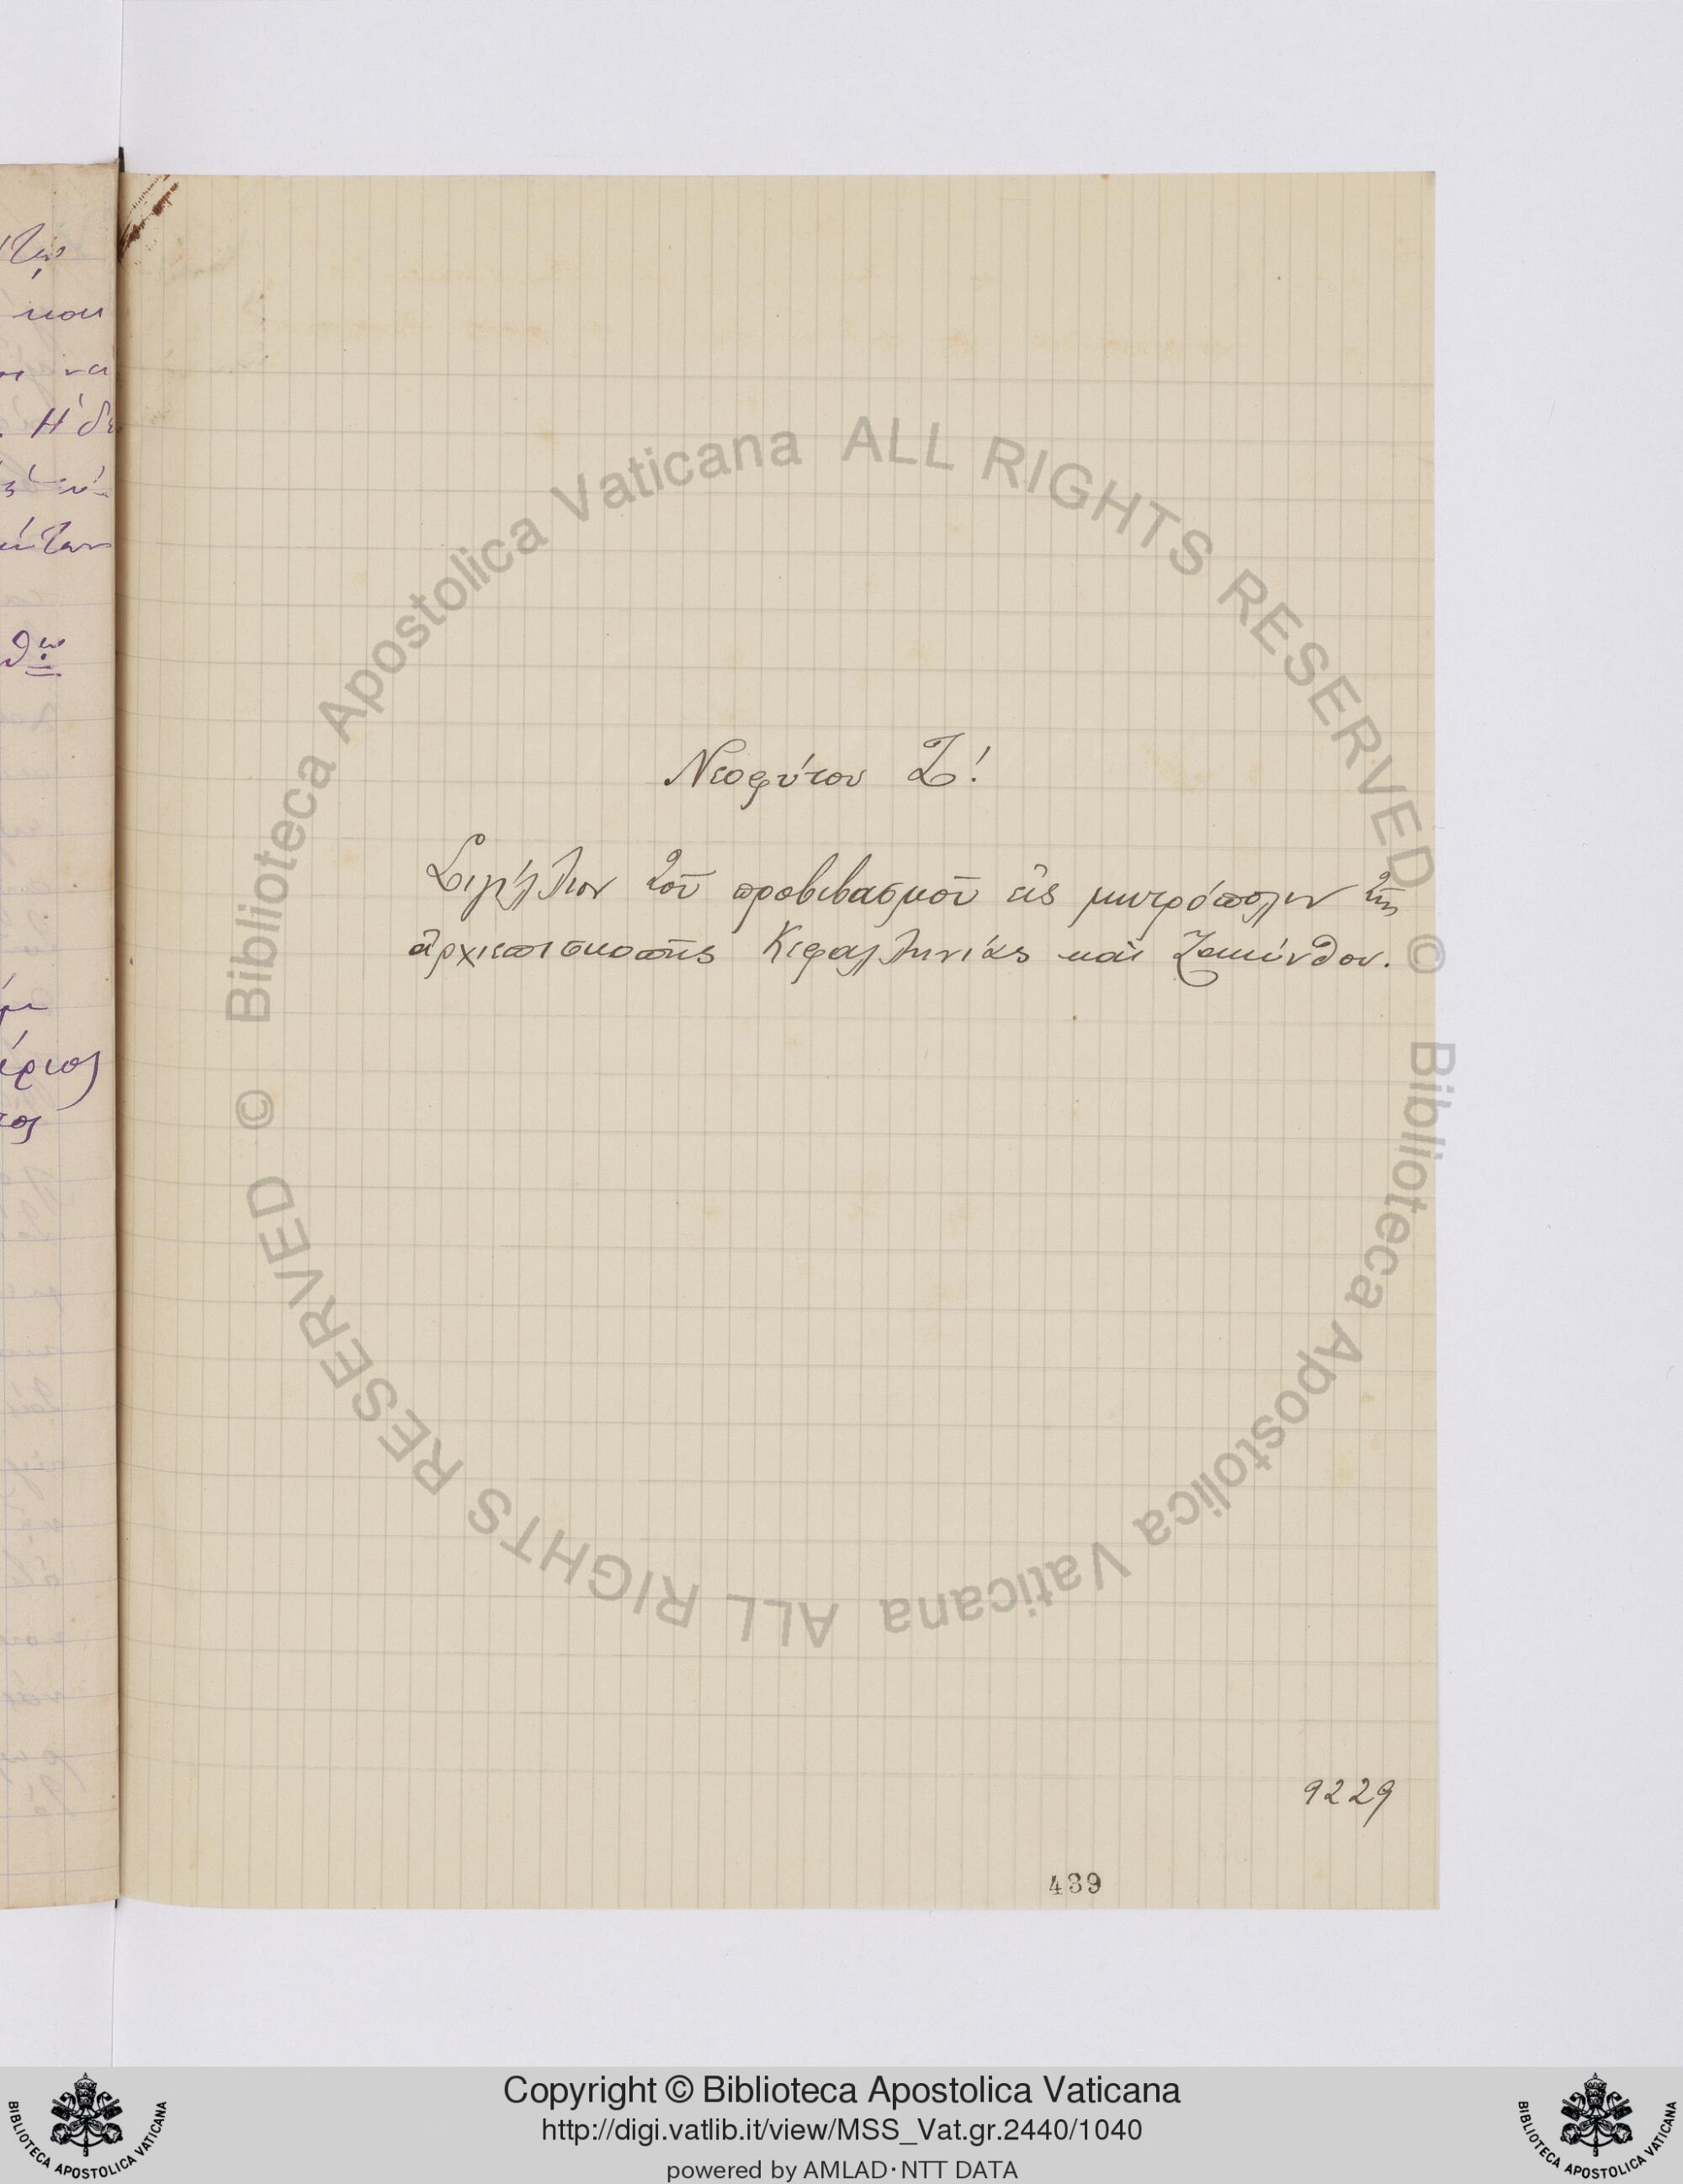 Νεοφύτου Ζ!
Σιγίλλιον τοῦ προβιβασμοῦ εἰς μητρόπολιν τῆς
ἀρχιεπισκοπῆς Κεφαλληνίας καὶ Ζακύνθου.
9229
439
Biblioteca Apostolica Vaticana ALL RIGHTS RESERVED ©
Biblioteca Apostolica Vaticana ALL RIGHTS RESERVED ©
Copyright © Biblioteca Apostolica Vaticana
http://digi.vatlib.it/view/MSS_Vat.gr.2440/1040
powered by AMLAD·NTT DATA
BIBLIOTECA APOSTOLICA VATICANA
BIBLIOTECA APOSTOLICA VATICANA